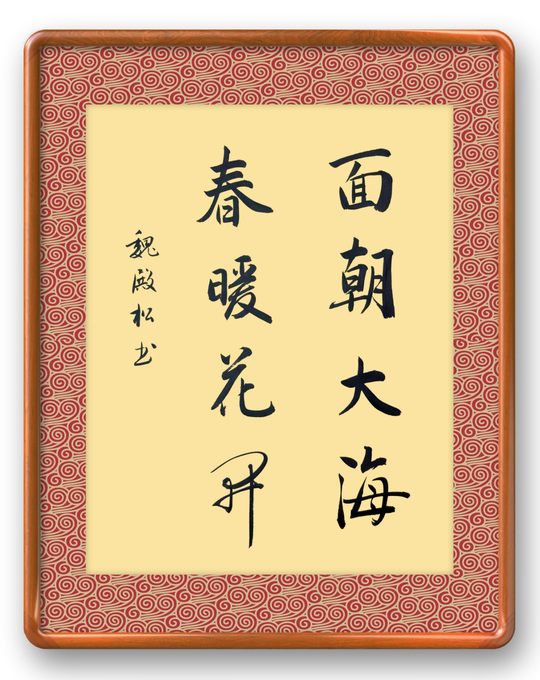 面朝大海
春暖花開
魏殿松书